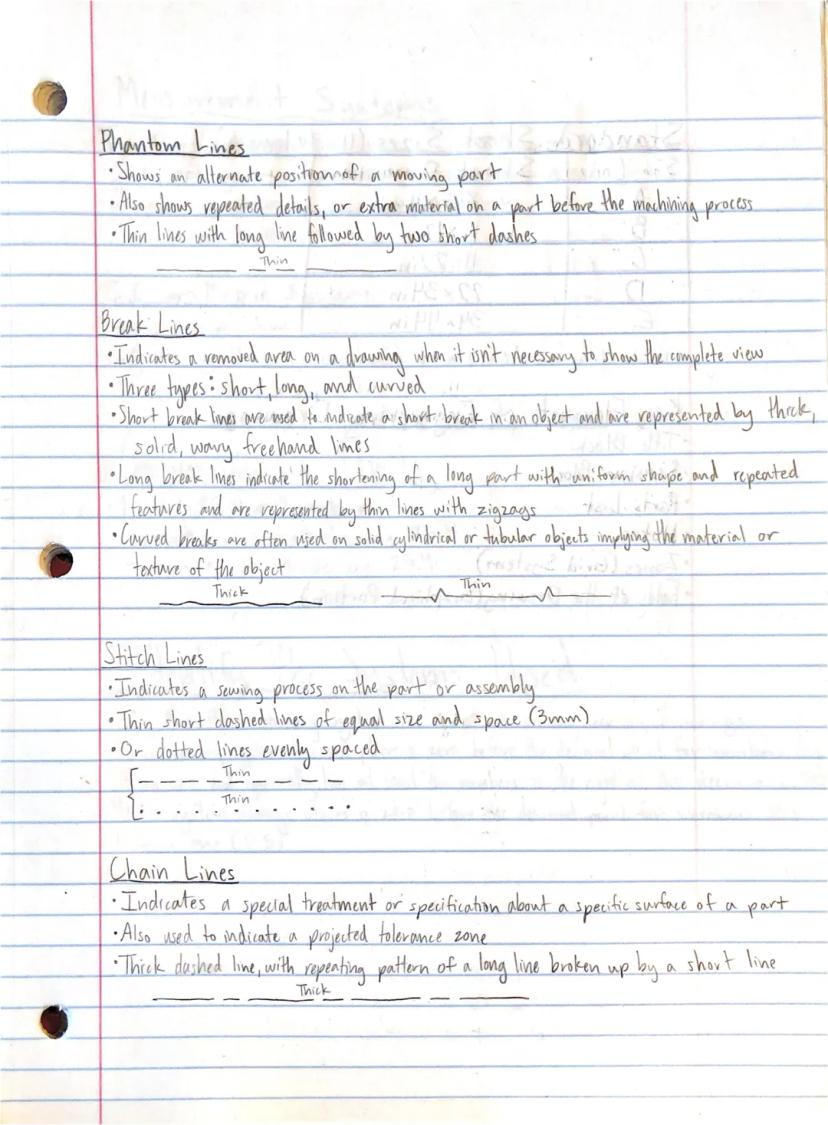 Phantom Lines
• Shows an alternate position of a moving part
• Also shows repeated details, or extra material on a part before the machining process
• Thin lines with long line followed by two short dashes
Thin
Break Lines
• Indicates a removed area on a drawing when it isn't necessary to show the complete view
• Three types: short, long, and curved
• Short break lines are used to indicate a short break in an object and are represented by thick,
solid, wavy freehand lines
• Long break lines indicate the shortening of a long part with uniform shape and repeated
features and are represented by thin lines with zigzags
• Curved breaks are often used on solid cylindrical or tubular objects implying the material or
texture of the object
Thick Thin
Stitch Lines
• Indicates a sewing process on the part or assembly
• Thin short dashed lines of equal size and space (3mm)
• Or dotted lines evenly spaced
Thin
Thin
Chain Lines
• Indicates a special treatment or specification about a specific surface of a part
• Also used to indicate a projected tolerance zone
• Thick dashed line, with repeating pattern of a long line broken up by a short line
Thick